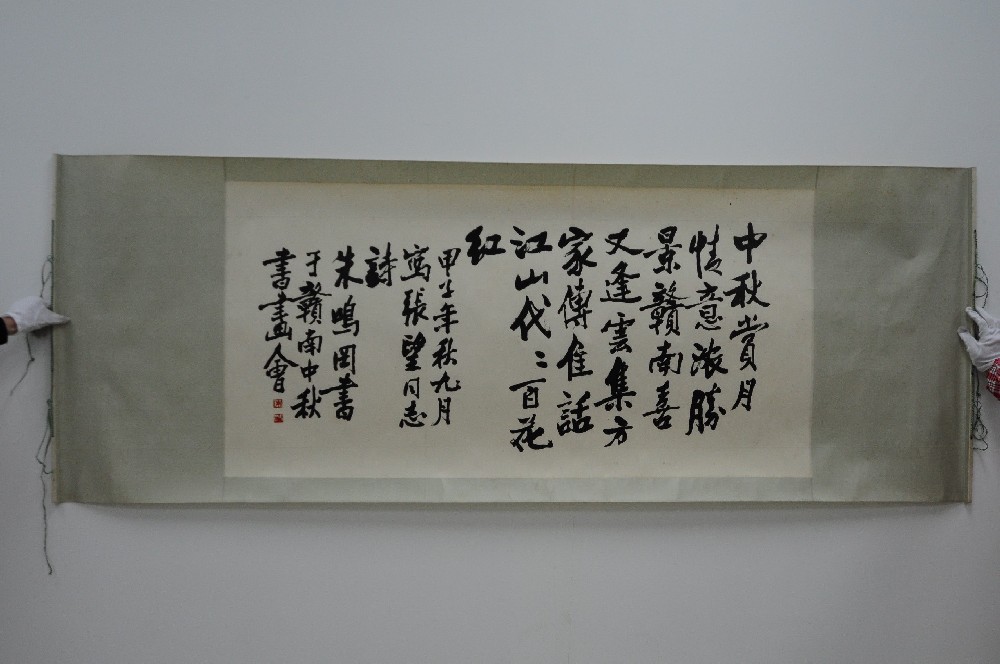 中秋赏月
情意浓勝
景贛南喜
又逢雲集方
家傳佳話
江山代〻百花
红
甲子年秋九月
寫張望同志
詩
朱鳴岡書
于贛南中秋
書畫會